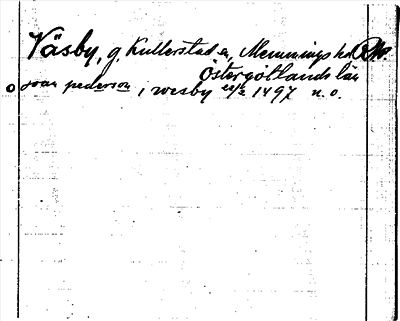 Väsby, g, Kullerstad sn, Memmings hd
Östergötlands län
joan pederson i wesby 22/2 1497 n. o.